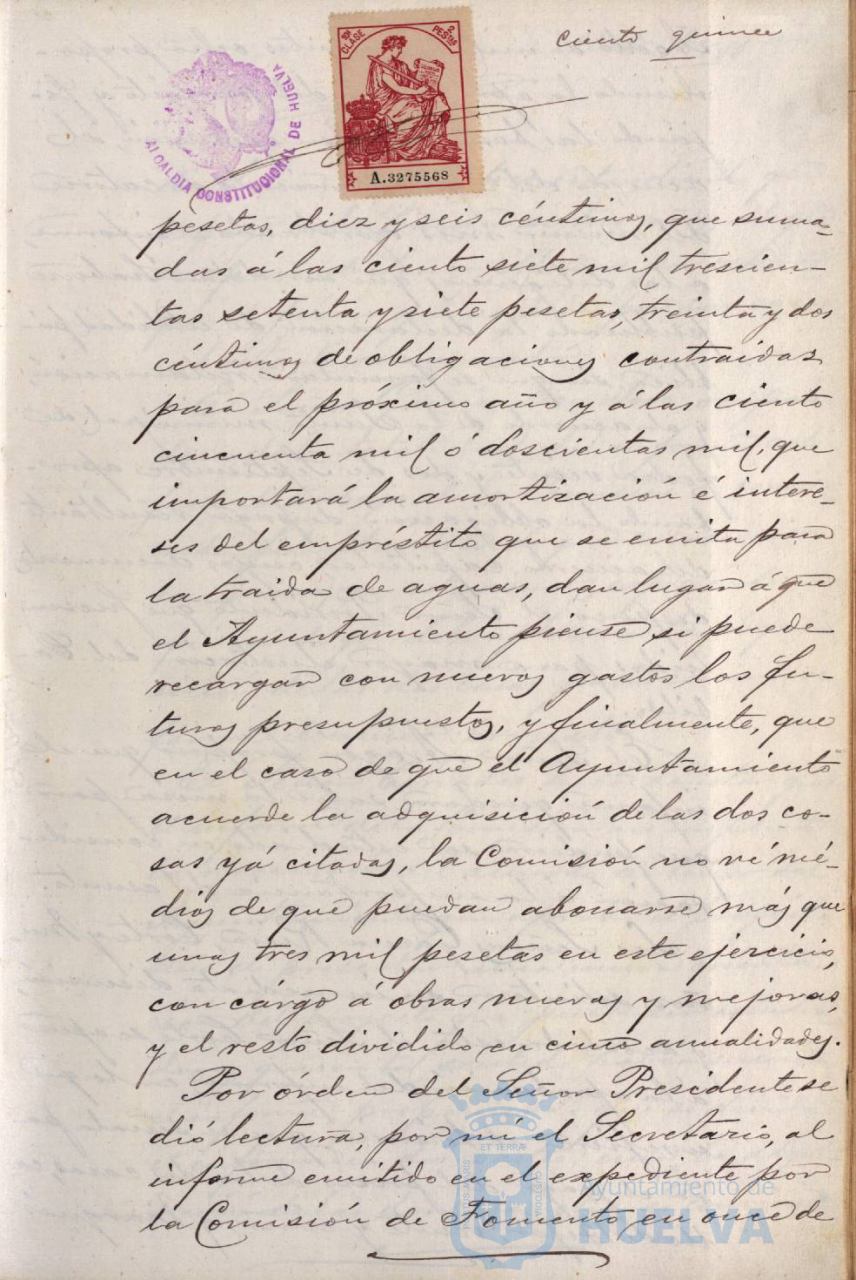 ciento quince
10ª CLASE
2 PESTAS
A.3275568
ALCALDIA CONSTITUCIONAL DE HUELVA
pesetas, diez y seis céntimos, que suma-
das á las ciento siete mil trescien-
tas setenta y siete pesetas, treinta y dos
céntimos de obligaciones contraidas
para el próximo año y á las ciento
cincuenta mil ó doscientas mil, que
importará la amortización é intere-
ses del empréstito que se emita para
la traida de aguas, dan lugar á que
el Ayuntamiento piense si puede
recargar con nuevos gastos los fu-
turos presupuestos, y finalmente, que
en el caso de que el Ayuntamiento
acuerde la adquisición de las dos co-
sas yá citadas, la Comisión no vé mé-
dios de que puedan abonarse más que
unas tres mil pesetas en este ejercicio,
con cárgo á obras nuevas y mejoras,
y el resto dividido en cinco anualidades.
Por órden del Señor Presidente se
dió lectura, por mí el Secretario, al
informe emitido en el expediente por
la Comisión de Fomento en once de
Ayuntamiento de
HUELVA